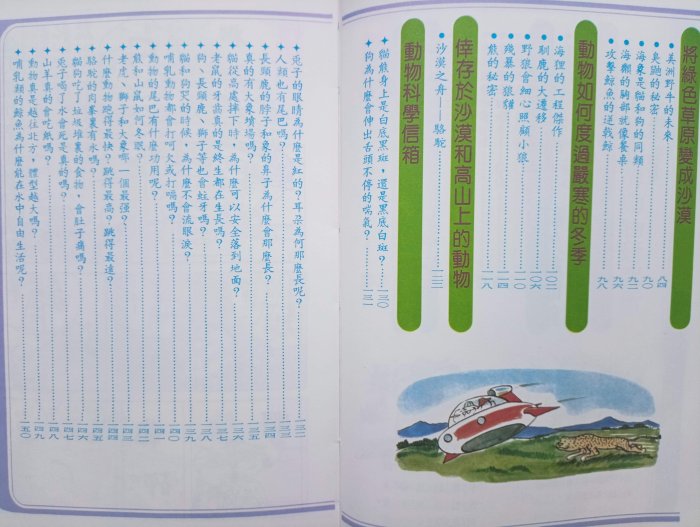 將綠色草原變成沙漠
•美洲野牛的未來……八四
•臭鼬的秘密……九〇
•海象是貓和狗的同類……九二
•海獺的胸部就像餐桌……九六
•攻擊鯨魚的逆戟鯨……九八
動物如何度過嚴寒的冬季
•海狸的工程傑作……一〇二
•馴鹿的大遷移……一〇六
•野狼會細心照顧小狼……一一〇
•殘暴的狼貛……一一四
•熊的秘密……一一八
倖存於沙漠和高山上的動物
•沙漠之舟——駱駝……一二三
動物科學信箱
•貓熊身上是白底黑斑，還是黑底白斑？……一三〇
•狗為什麼會伸出舌頭不停的喘氣？……一三一
•兔子的眼睛為什麼是紅的？耳朵為何那麼長呢？……一三二
•人類也有尾巴嗎？……一三三
•長頸鹿的脖子和象的鼻子為什麼會那麼長？……一三四
•真的有大象墳場嗎？……一三五
•貓從高處摔下時，為什麼可以安全落到地面？……一三六
•老鼠的牙齒真的是終生都在生長嗎？……一三七
•狗、長頸鹿、獅子等也會蛀牙嗎？……一三八
•貓和狗哭的時候，為什麼不會流眼淚？……一三九
•哺乳動物都會打呵欠或打嗝嗎？……一四〇
•動物的尾巴有什麼功用呢？……一四一
•熊和山鼠如何冬眠？……一四二
•老虎、獅子和大象哪一個最強？……一四三
•什麼動物跑得最快？跳得最高？跳得最遠？……一四四
•駱駝的肉峯裏有水嗎？……一四五
•貓狗吃了垃圾堆裏的食物，會肚子痛嗎？……一四六
•兔子喝了水會死是真的嗎？……一四七
•山羊真的會吃紙嗎？……一四八
•動物真是越往北方，體型越大嗎？……一四九
•哺乳類的鯨魚為什麼能在水中自由生活呢？……一五〇